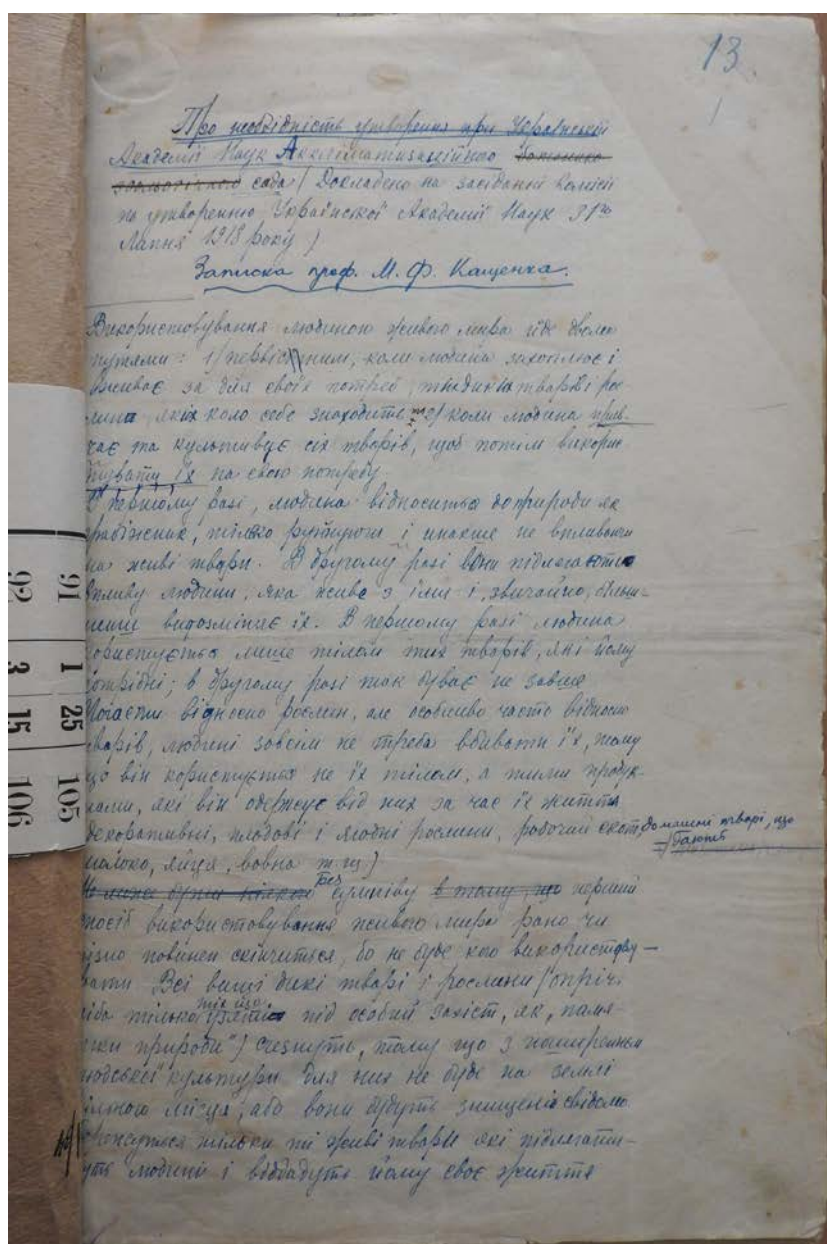 13
1
Про необхідність утворення при Українській
Академії Наук Акклiматизаційного Ботанико-
зоольогічного сада (Докладено на засіданні Комісії
по утворенню Української Академії Наук 31го
Липня 1918 року)
Записка проф. М. Ф. Кащенка.
Використовування людиною живого мира йде двома
путями: 1/ первісним, коли людина захоплює і
вживає за для своїх потреб тварі і рос-
лини яких коло себе знаходить 2/ коли людина прив-
чає та культивує сіх тварів, щоб потім викорис
тувати їх на свою потребу
В першому разі, людина відноситься до природи як
грабіжник, тілько руйнуючи і инакше не впливаючи
на живі твари. В другому разі вони підлягають
впливу людини, яка живе з їми і, звичайно, більш-
менш видозмінює їх. В першому разі людина
користується лише тілом тих тварів, які йому
потрібні; в другому разі так буває не завше
Почасти відносно рослин, але особливо часто відносно
тварів, людині зовсім не треба вбивати їх, тому
що він користується не їх тілом, а тими продук-
тами, які він одержує від них за час їх життя
декоративні, плодові і рослини, робочий скот, домашні тварі, що
дають
молоко, яйця, вовна т. щ.)
Не може бути Без сумніву в тому що перший
спосіб використовування живого мира рано чи
пізно повинен скінчиться, бо не буде кого використову-
вати Всі вищі дикі тварі і рослини (опріч
хіба тілько тих що узяті під особий захист, як „памя-
тки природи") счезнуть, тому що з поширенням
людської культури для них не буде на землі
вільного місця, або вони будуть знищені свідомо
тілько ті живі твари які підлягати-
муть людині і віддадуть йому своє життя
91 1 25 105
92 3 15 106